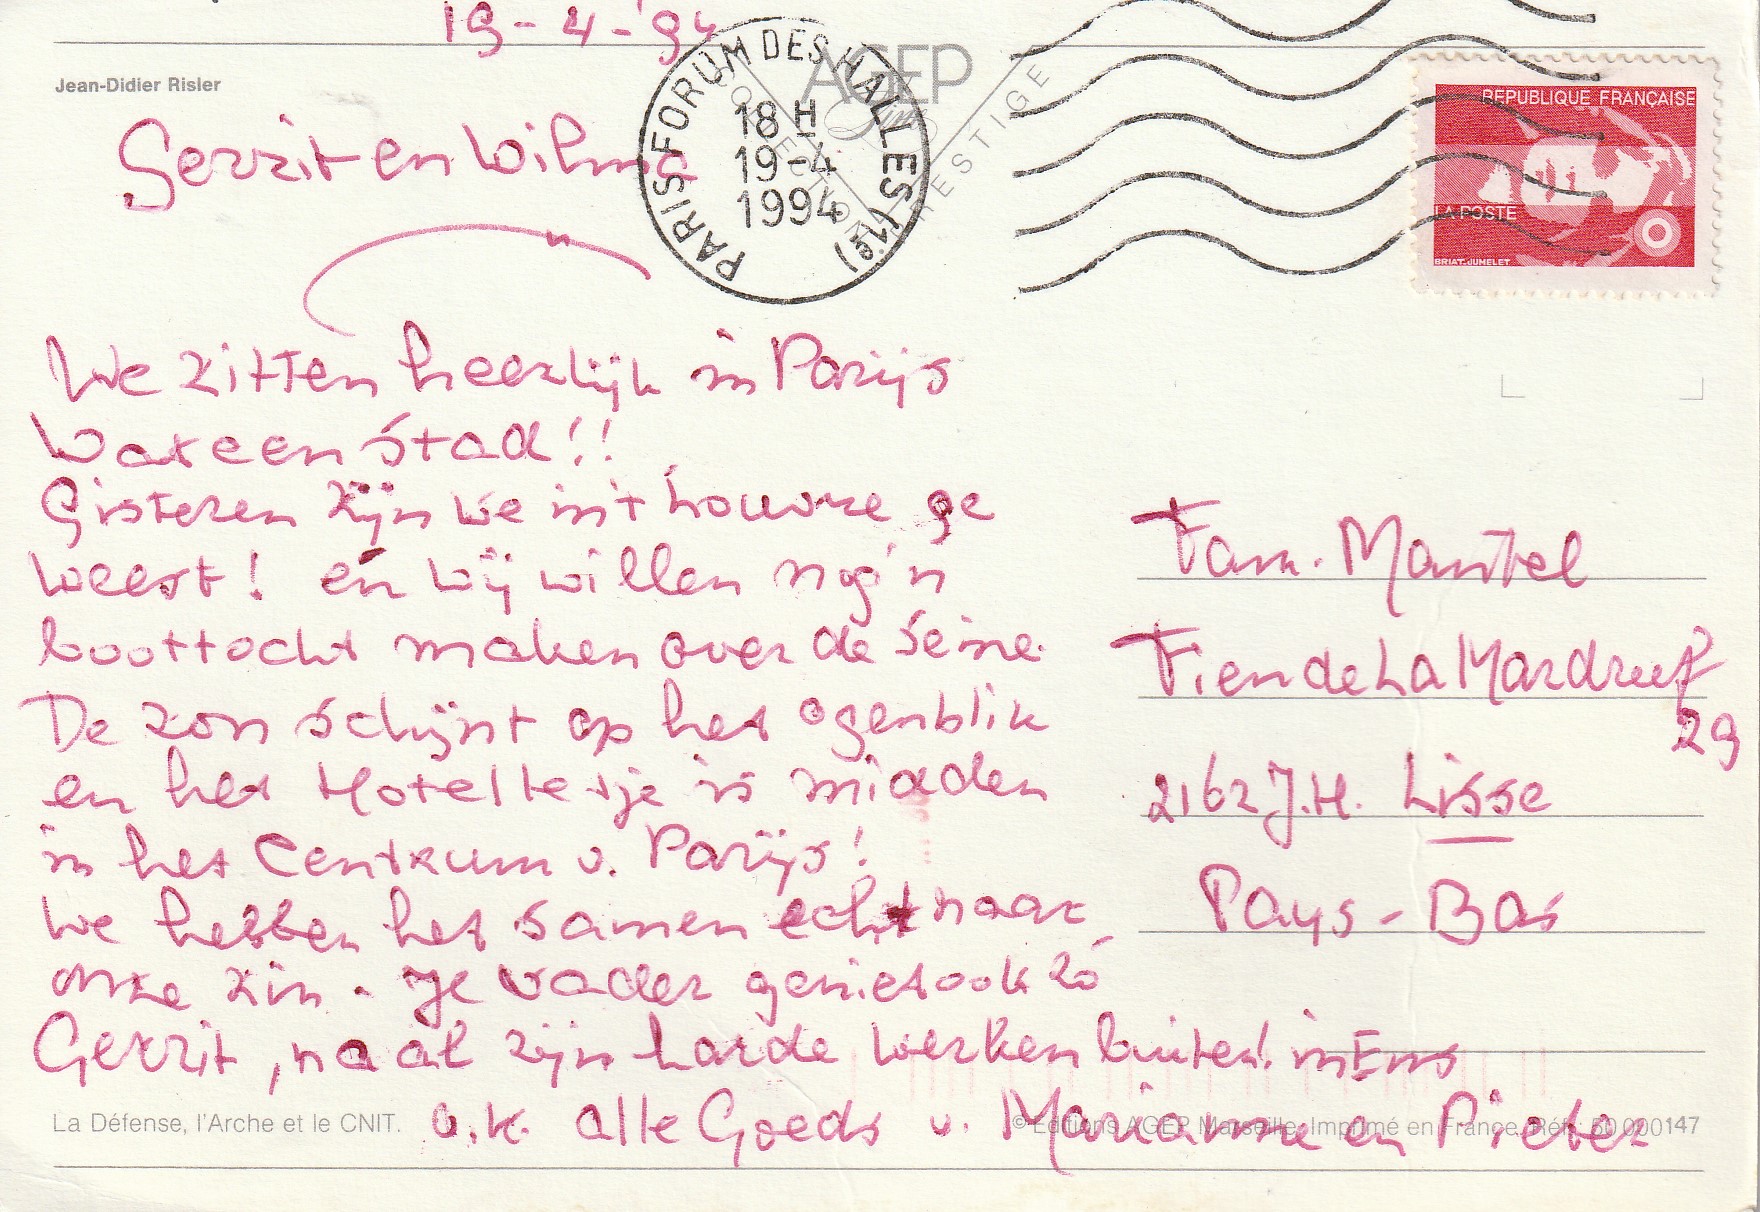 19-4-'94
Jean-Didier Risler
AGEP
COLLECTION PRESTIGE
PARIS FORUM DES HALLES (1e)
18 H
19-4
1994
REPUBLIQUE FRANÇAISE
LA POSTE
BRIAT-JUMELET
Gerrit en Wilma
We zitten heerlijk in Parijs
Wat een stad!!
Gisteren zijn we in 't Louvre ge
weest! en wij willen nog 'n
boottocht maken over de Seine.
De zon schijnt op het ogenblik
en het Hotelletje is midden
in het Centrum v. Parijs!
We hebben het samen echt naar
onze zin. Je vader geniet ook zó
Gerrit, na al zijn harde werken buiten! in Ens
v.k. alle Goeds v. Marianne en Pieter
Fam. Mantel
Fien de La Mardreef
29
2162 J.H. Lisse
Pays-Bas
La Défense, l'Arche et le CNIT.
© Editions AGEP Marseille. Imprimé en France. Réf. 50 000147